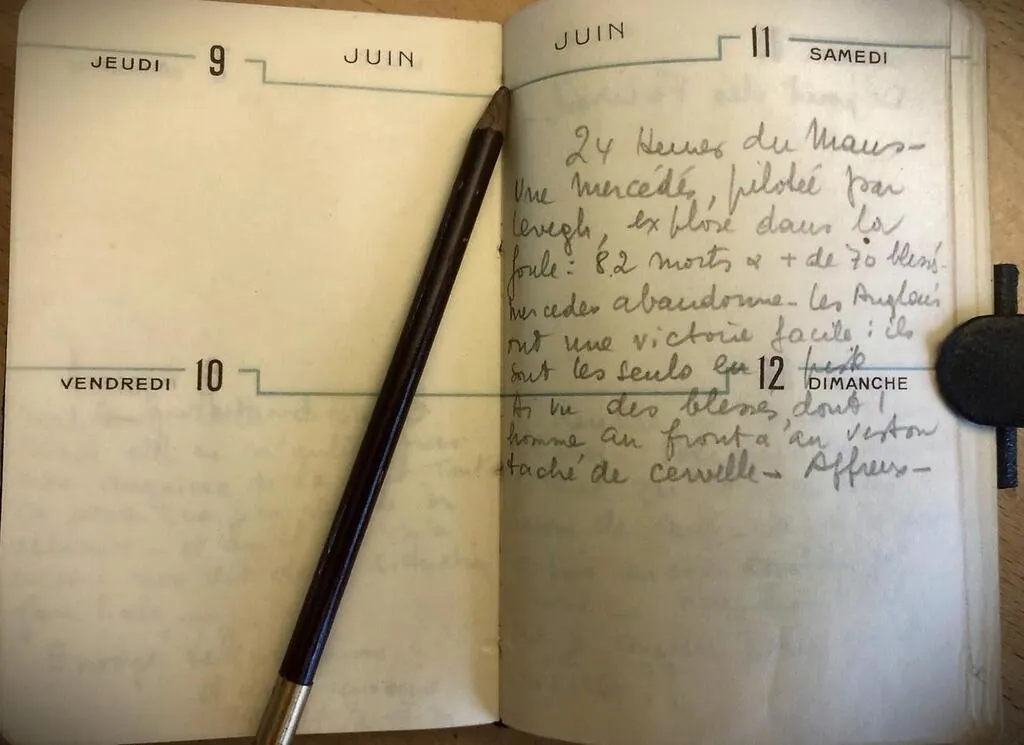 JEUDI 9 JUIN
VENDREDI 10
JUIN 11 SAMEDI
24 Heures du Mans -
Une mercédés, pilotée par
Levegh, explose dans la
foule : 82 morts & + de 70 blessés.
mercedes abandonne - les Anglais
ont une victoire facile : ils
sont les seuls en piste
12 DIMANCHE
Ai vu des blessés dont 1
homme au front a au veston
taché de cervelle - Affreux -